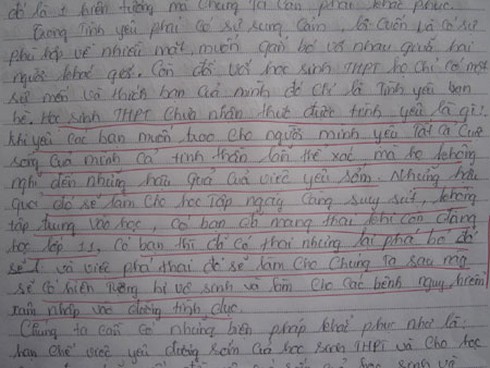 đó là 1 hiện tượng mà chúng ta cần phải khắc phục.
Trong tình yêu phải có sự rung cảm, lôi cuốn và có sự
phù hợp về nhiều mặt, muốn gắn bó với nhau giữa hai
người khác giới. Còn đối với học sinh THPT họ chỉ có một
sự mến và thích bạn của mình đó chỉ là tình yêu bạn
bè. Học sinh THPT chưa nhận thức được tình yêu là gì?
khi yêu các bạn muốn trao cho người mình yêu tất cả cuộc
sống của mình cả tinh thần lẫn thể xác, mà họ không
nghĩ đến những hậu quả của việc yêu sớm. Nhưng hậu
quả đó sẽ làm cho học tập ngày càng suy sút, không
tập trung vào học, có bạn ch mang thai khi còn đang
học lớp 11, có bạn thì đã có thai nhưng lại phá bỏ đó
sẽ và việc phá thai đó sẽ làm cho chúng ta sau này
sẽ có hiện tượng bị vô sinh và làm cho các bệnh nguy hiểm
xâm nhập vào đường tình dục.
Chúng ta cần có những biện pháp khắc phục như là:
hạn chế việc yêu đương sớm của học sinh THPT và cho học
sinh và